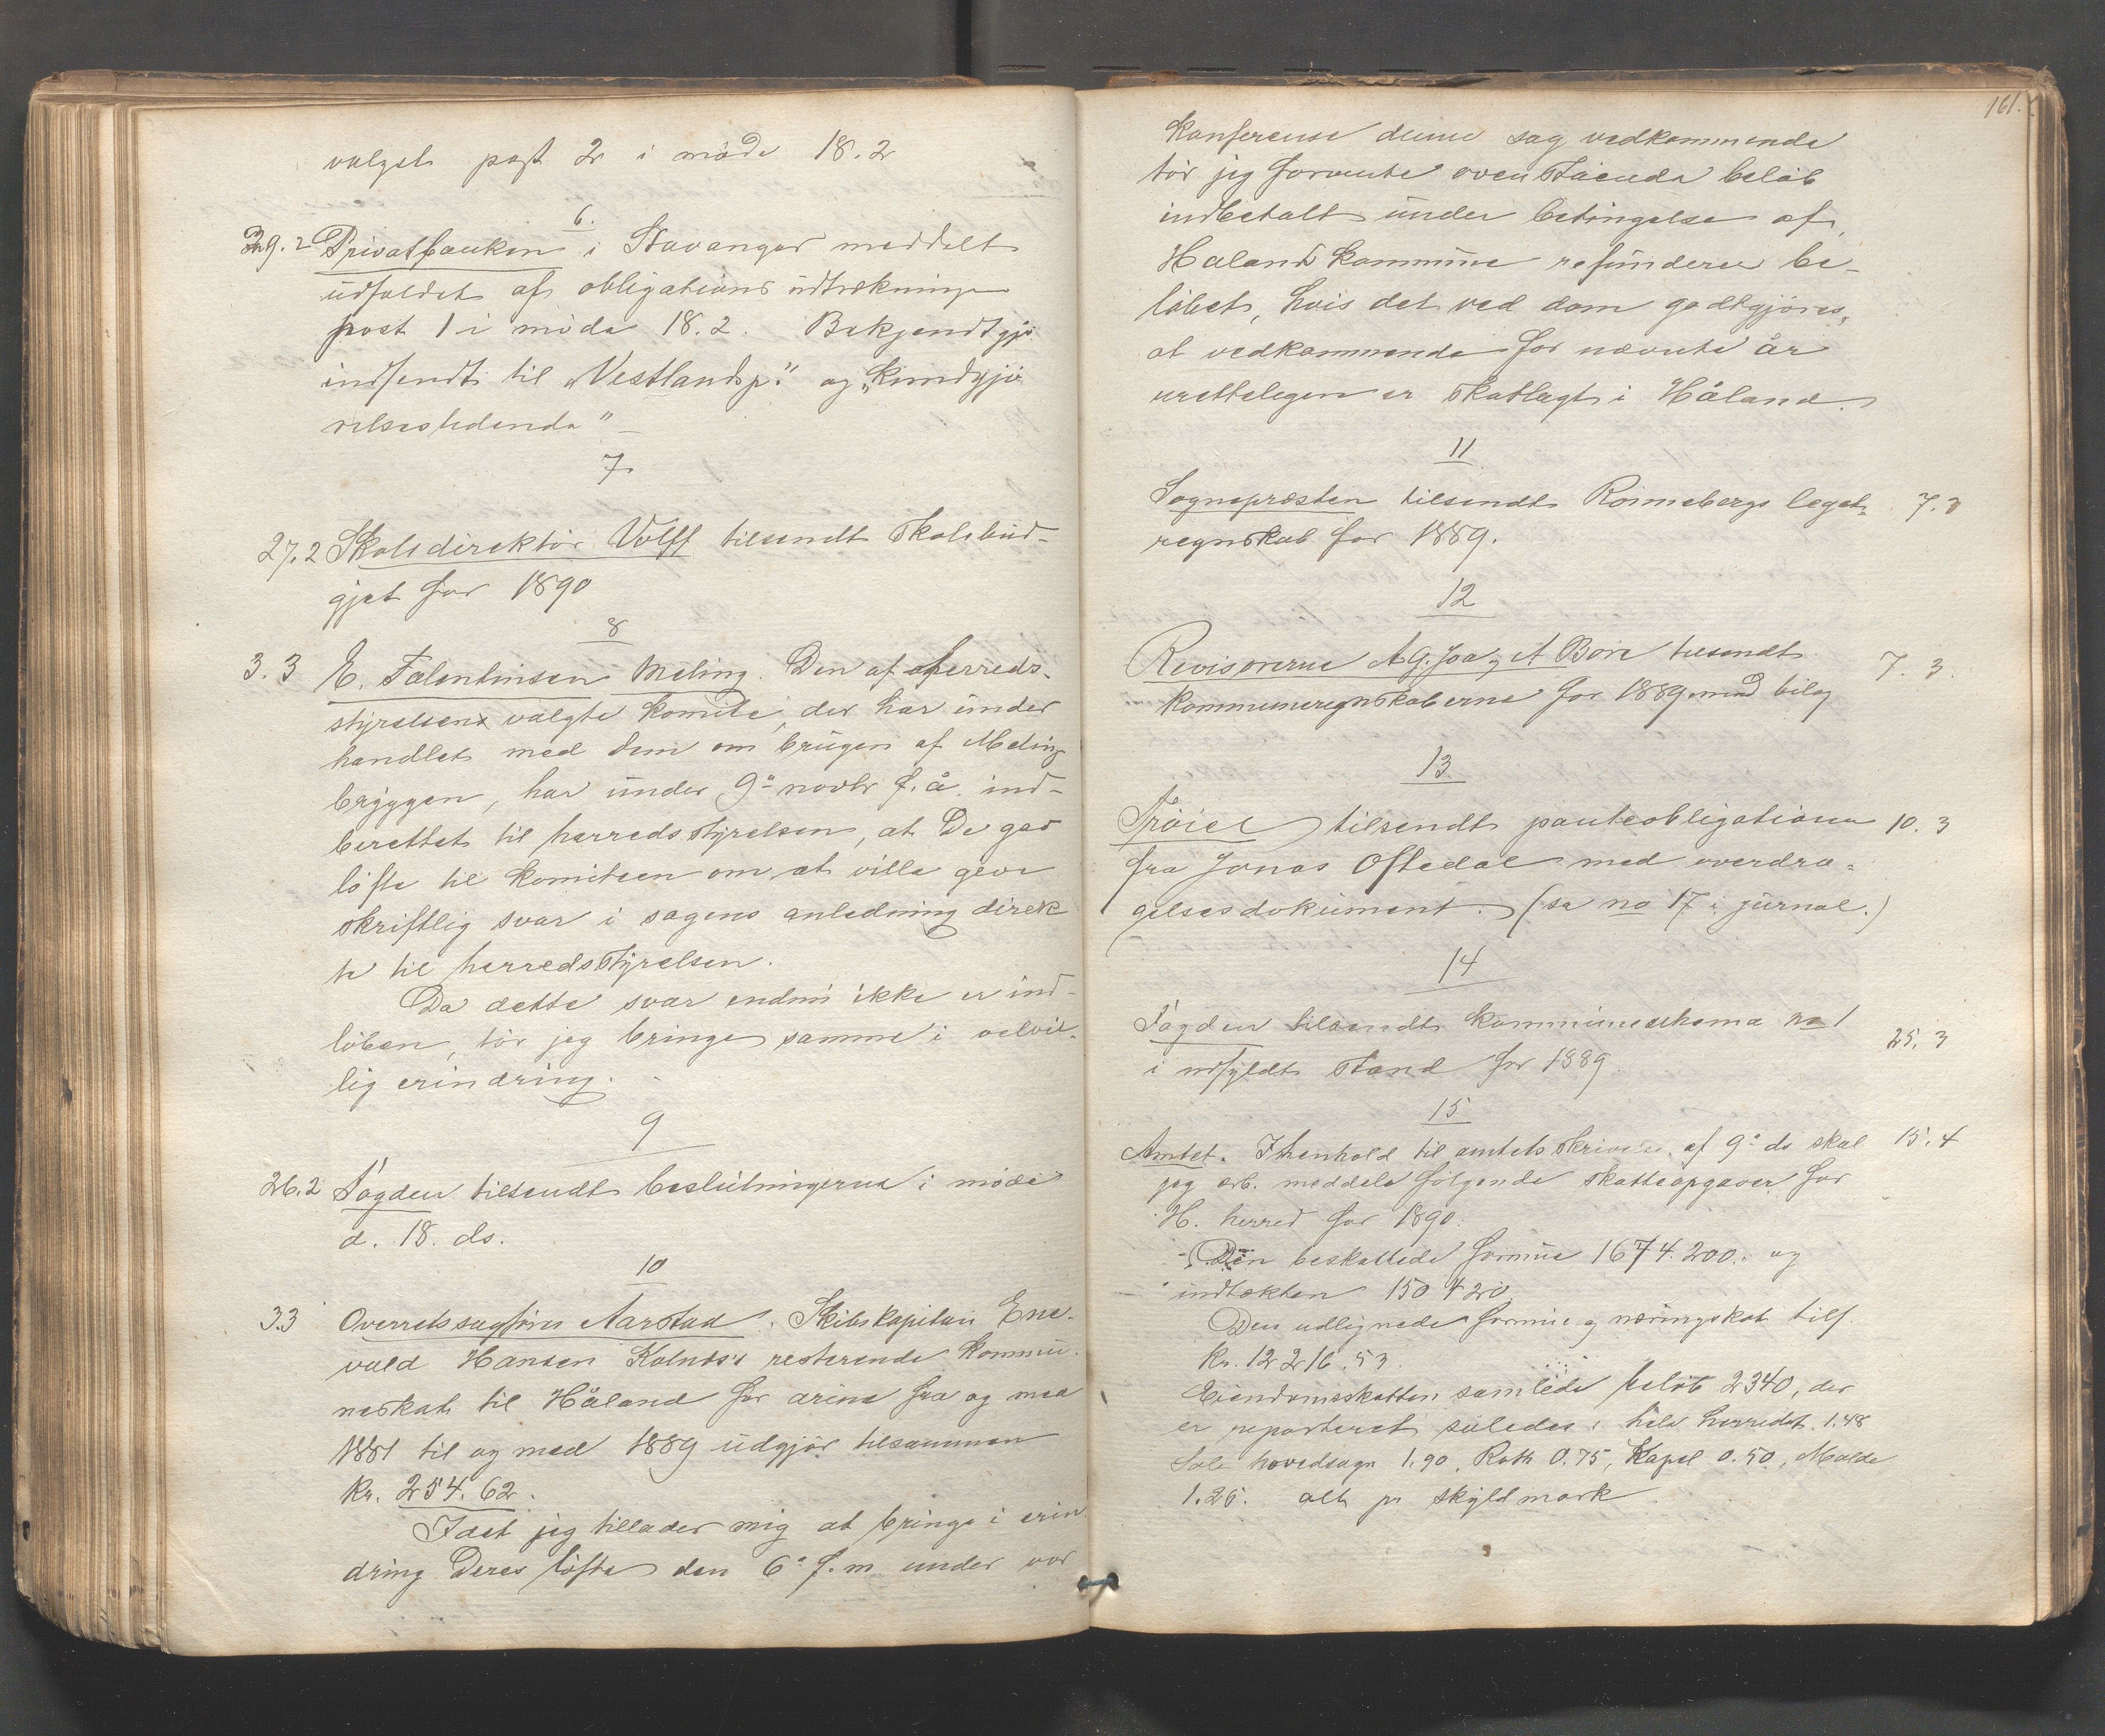 valgets post 2 i möde 18.2
6.
29.2 Privatbanken i Stavanger meddelt
udfaldet af obligations udtrækninge
post 1 i möde 18.2. Bekjendtgjö
indsendt til „Vestlandsp." og „Kundgjö
relsestidende"
7
27.2 Skoledirektör Volff tilsendt skolebud-
gjet for 1890
8
3.3 E. Falentinsen Meling. Den af herreds-
styrelsen valgte komite, der har under
handlet med dem om brugen af Meling
bryggen, har under 9de novbr f.å. ind-
berettet til herredsstyrelsen, at De gav
löfte til komiteen om at ville give
skriftlig svar i sagens anledning direk
te til herredsstyrelsen.
Da dette svar endnu ikke er ind-
löben, tör jeg bringe samme i velvil-
lig erindring.
9
26.2 Fogden tilsendt beslutningerne i möde
d. 18. ds.
10
3.3 Overretssagförer Aarstad. Skibskaptein Ene-
vald Hansen Kolnes's resterende kommu-
neskat til Håland for årene fra og med
1881 til og med 1889 udgjör tilsammen
Kr. 254.62.
Idet jeg tillader mig at bringe i erin
dring Deres löfte den 6te f.m. under vor
161.
konferense denne sag vedkommende
tör jeg forvente ovenstående belöb
indbetalt under betingelse af,
Haland kommune refunderer be-
löbet, hvis det ved dom godtgjöres,
at vedkommende for nævnte år
urettelegen er skatlagt i Håland.
11
Sognepresten tilsendt Rönnebergs legat- 7.3
regnskab for 1889.
12
Revisorerne AG. Joa og A Böre tilsendt 7.3.
kommuneregnskaberne for 1889 med bilag
13
Tröien tilsendt panteobligationen 10.3
fra Jonas Oftedal med overdra-
gelsesdokument. (se no 17 i jurnal.)
14
Fogden tilsendt kommuneskema no 1
25.3
i udfyldt stand for 1889
15
Amtet. I henhold til amtets skrivelse af 9de ds skal 15.4
jeg erb. meddele fölgende skatteopgaver for
H. herred for 1890:
Den beskattede formue 1674.200. og
indtækten 150420.
Den udlignede formue og næringskat tils.
Kr. 12216.53.
Eiendomsskatten samlede belöb 2340, der
er reparteret således: hele herredet 1.48
Sole hovedsogn 1.90, Roth 0.75, Kapel 0.50, Malde
1.25. alt pr skyldmark